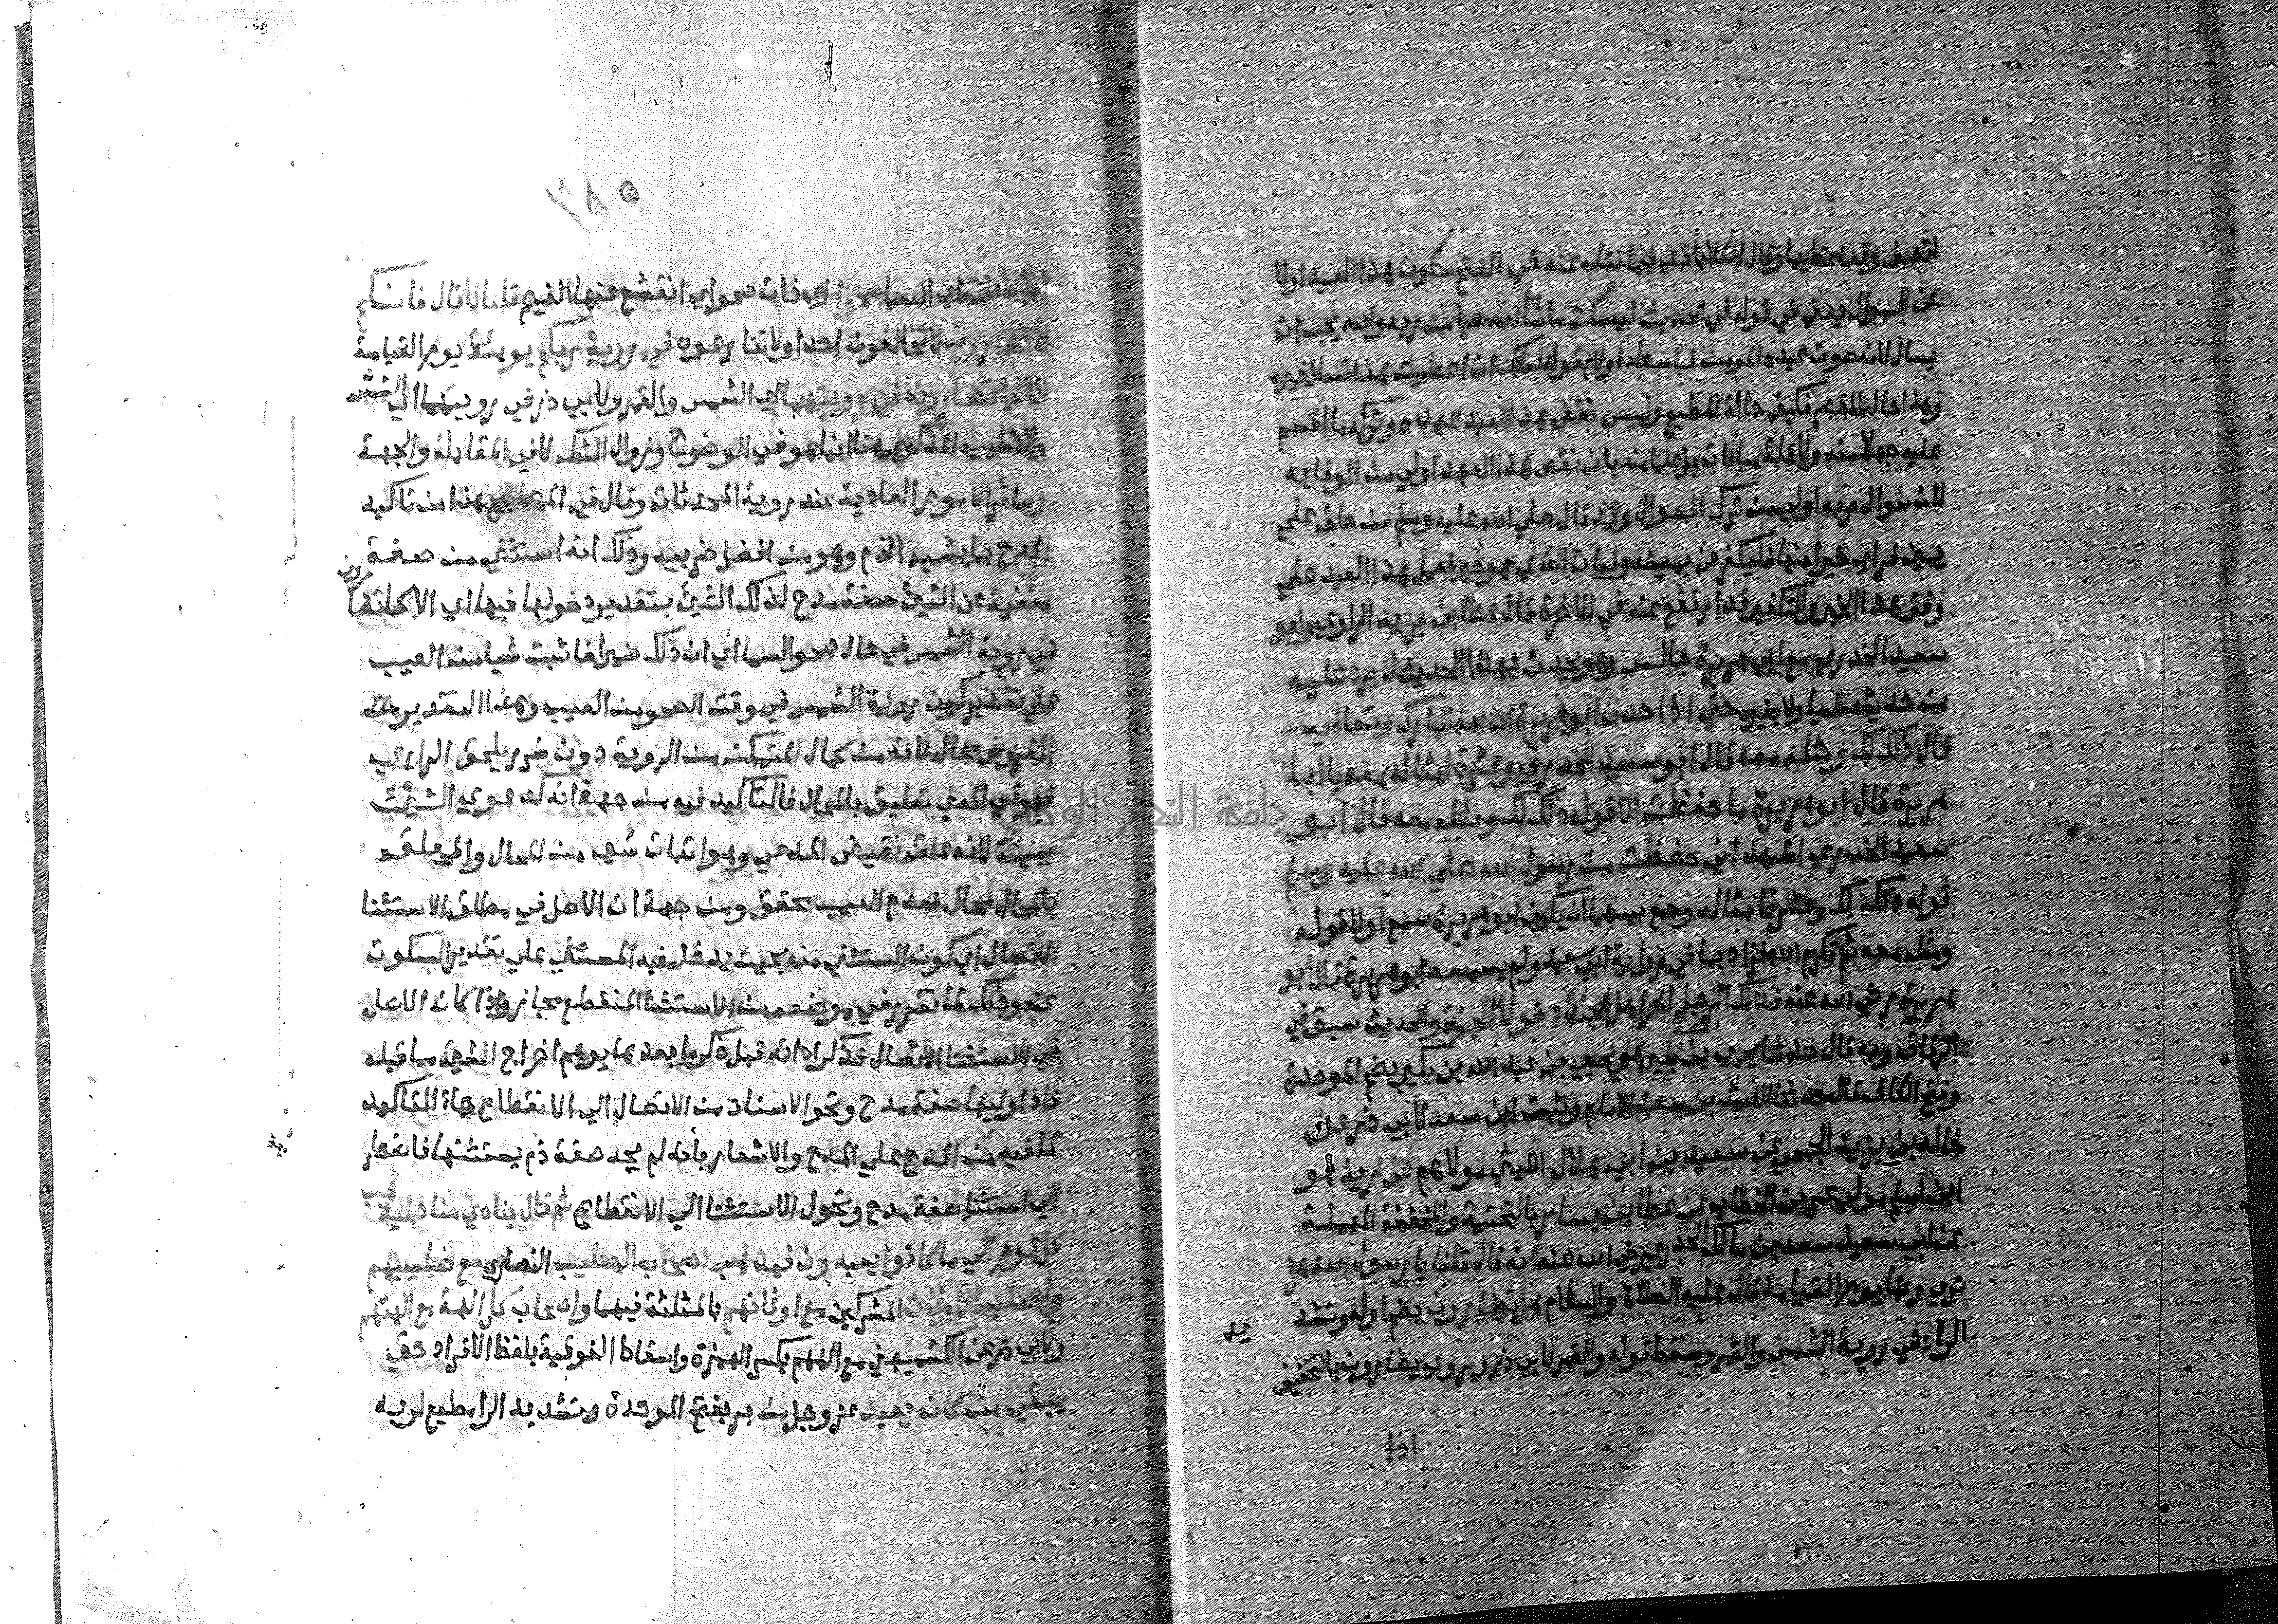 اتصف وقد عظيما وقال الكلاباذي فيما نقله عنه في الفتح سكوت هذا العبد اولا
عن السوال يعني في قوله في الحديث ليسكت ما شا الله حيا من ربه والله يحب ان
يسال لانه صوت عبده المومن فباسطه اولا بقوله لعلك ان اعطيت هذا تسال غيره
وهذا حال المقصر فكيف حالة المطيع وليس نقض هذا العبد عهده وتركه ما اقسم
عليه جهلا منه ولا قلة مبالاة بل علما منه بان نقض هذا العهد اولي من الوفا به
لان سوال ربه اولي من ترك السوال وقد قال صلي الله عليه وسلم من حلف علي
يمين فراي خيرا منها فليكفر عن يمينه وليات الذي هو خير فعمل هذا العبد علي
وفق هذا الخبر والتكفير قد ارتفع عنه في الاخرة قال عطا بن يزيد الراوي وابو
سعيد الخدري مع ابي هريرة جالس وهو يحدث بهذا الحديث لا يرد عليه
من حديثه شيا ولا يغيره حتي اذا حدث ابو هريرة ان الله تبارك وتعالي
قال ذلك لك ومثله معه قال ابو سعيد الخدري وعشرة امثاله معه يا ابا
هريرة قال ابو هريرة ما حفظت الا قوله ذلك لك ومثله معه قال ابو
سعيد الخدري اشهد اني حفظت من رسول الله صلي الله عليه وسلم
قوله ذلك لك وعشرة امثاله وجمع بينهما انه يكون ابو هريرة سمع اولا قوله
ومثله معه ثم تكرم الله فزاد بما في رواية ابي سعيد ولم يسمعه ابو هريرة قال ابو
هريرة رضي الله عنه فذلك الرجل اخر اهل الجنة دخولا الجنة والحديث سبق في
الرقاق وبه قال حدثنا يحيي بن بكير هو يحيي بن عبد الله بن بكير بضم الموحدة
وفتح الكاف قال حدثنا الليث بن سعد الامام وثبت ابن سعد لابي ذر عن
خالد بن يزيد الجمحي عن سعيد بن ابي هلال الليثي مولاهم عن زيد هو
ابن اسلم مولي عمر بن الخطاب عن عطا بن يسار بالتحتية والمخففة المهملة
عن ابي سعيد سعد بن مالك الخدري رضي الله عنه انه قال قلنا يا رسول الله هل
نري ربنا يوم القيامة قال عليه الصلاة والسلام هل تضارون بضم اوله وتشديد
الرا في روية الشمس والقمر وسقط قوله والقمر لابي ذر ويروي تضارون بالتخفيف
اذا
٣٨٥
اذا كانت اي السما صحوا اي ذات صحو اي انقشع عنها الغيم قلنا لا قال فانكم
لا تضارون لا تخالفون احدا ولا تنازعوه في روية ربكم يومئذ يوم القيامة
الا كما تضارون في رويتهما اي الشمس والقمر ولابي ذر في رويتها اي الشمس
والتشبيه المذكور هنا انما هو في الوضوح وزوال الشك لا في المقابلة والجهة
وسائر الامور العادية عند روية المحدثات وقال في المصابيح هذا من تاكيد
المدح بما يشبه الذم وهو من افضل ضربيه وذلك انه استثني من صفة
منفية عن الشي صفة مدح لذلك الشي بتقدير دخولها فيها اي الا كما تضارون
في روية الشمس في حال صحو السما اي ان ذلك ضيرا فاثبت شيا من العيب
علي تقدير كون روية الشمس في وقت الصحو من العيب وهذا التقدير
المفروض محال لانه من كمال التمكن من الروية دون ضرر يلحق الراي
فهو في المعني تعليق بالمحال فالتاكيد فيه من جهة انه كدعوي الشي
ببينة لانه علق نقيض المدعي وهو اثبات شي من المحال والمعلق
بالمحال محال فعدم العيب محقق ومن جهة ان الاصل في مطلق الاستثنا
الاتصال اي كون المستثني منه بحيث يدخل فيه المستثني علي تقدير السكوت
عنه وذلك لما تقرر في موضعه من الاستثنا المنقطع مجاز واذا كان الاصل
في الاستثنا الاتصال فذكر اداته قبل ذكر ما بعدها يوهم اخراج الشي مما قبله
فاذا وليها صفة مدح وتحول الاستثنا من الاتصال الي الانقطاع جاء التاكيد
لما فيه من المدح علي المدح والاشعار بانه لم يجد صفة ذم يستثنيها فاضطر
الي استثنا صفة مدح وتحول الاستثنا الي الانقطاع ثم قال ينادي مناد ليذهب
كل قوم الي ما كانوا يعبدون فيذهب اصحاب الصليب النصاري مع صليبهم
واصحاب الاوثان المشركين مع اوثانهم بالمثلثة فيهما واصحاب كل الهة مع الهتهم
ولابي ذر عن الكشميهني مع الههم بكسر الهمزة واسقاط الفوقية بلفظ الافراد حتي
يبقي من كان يعبد عز وجل من بر بفتح الموحدة وتشديد الرا مطيع لربه